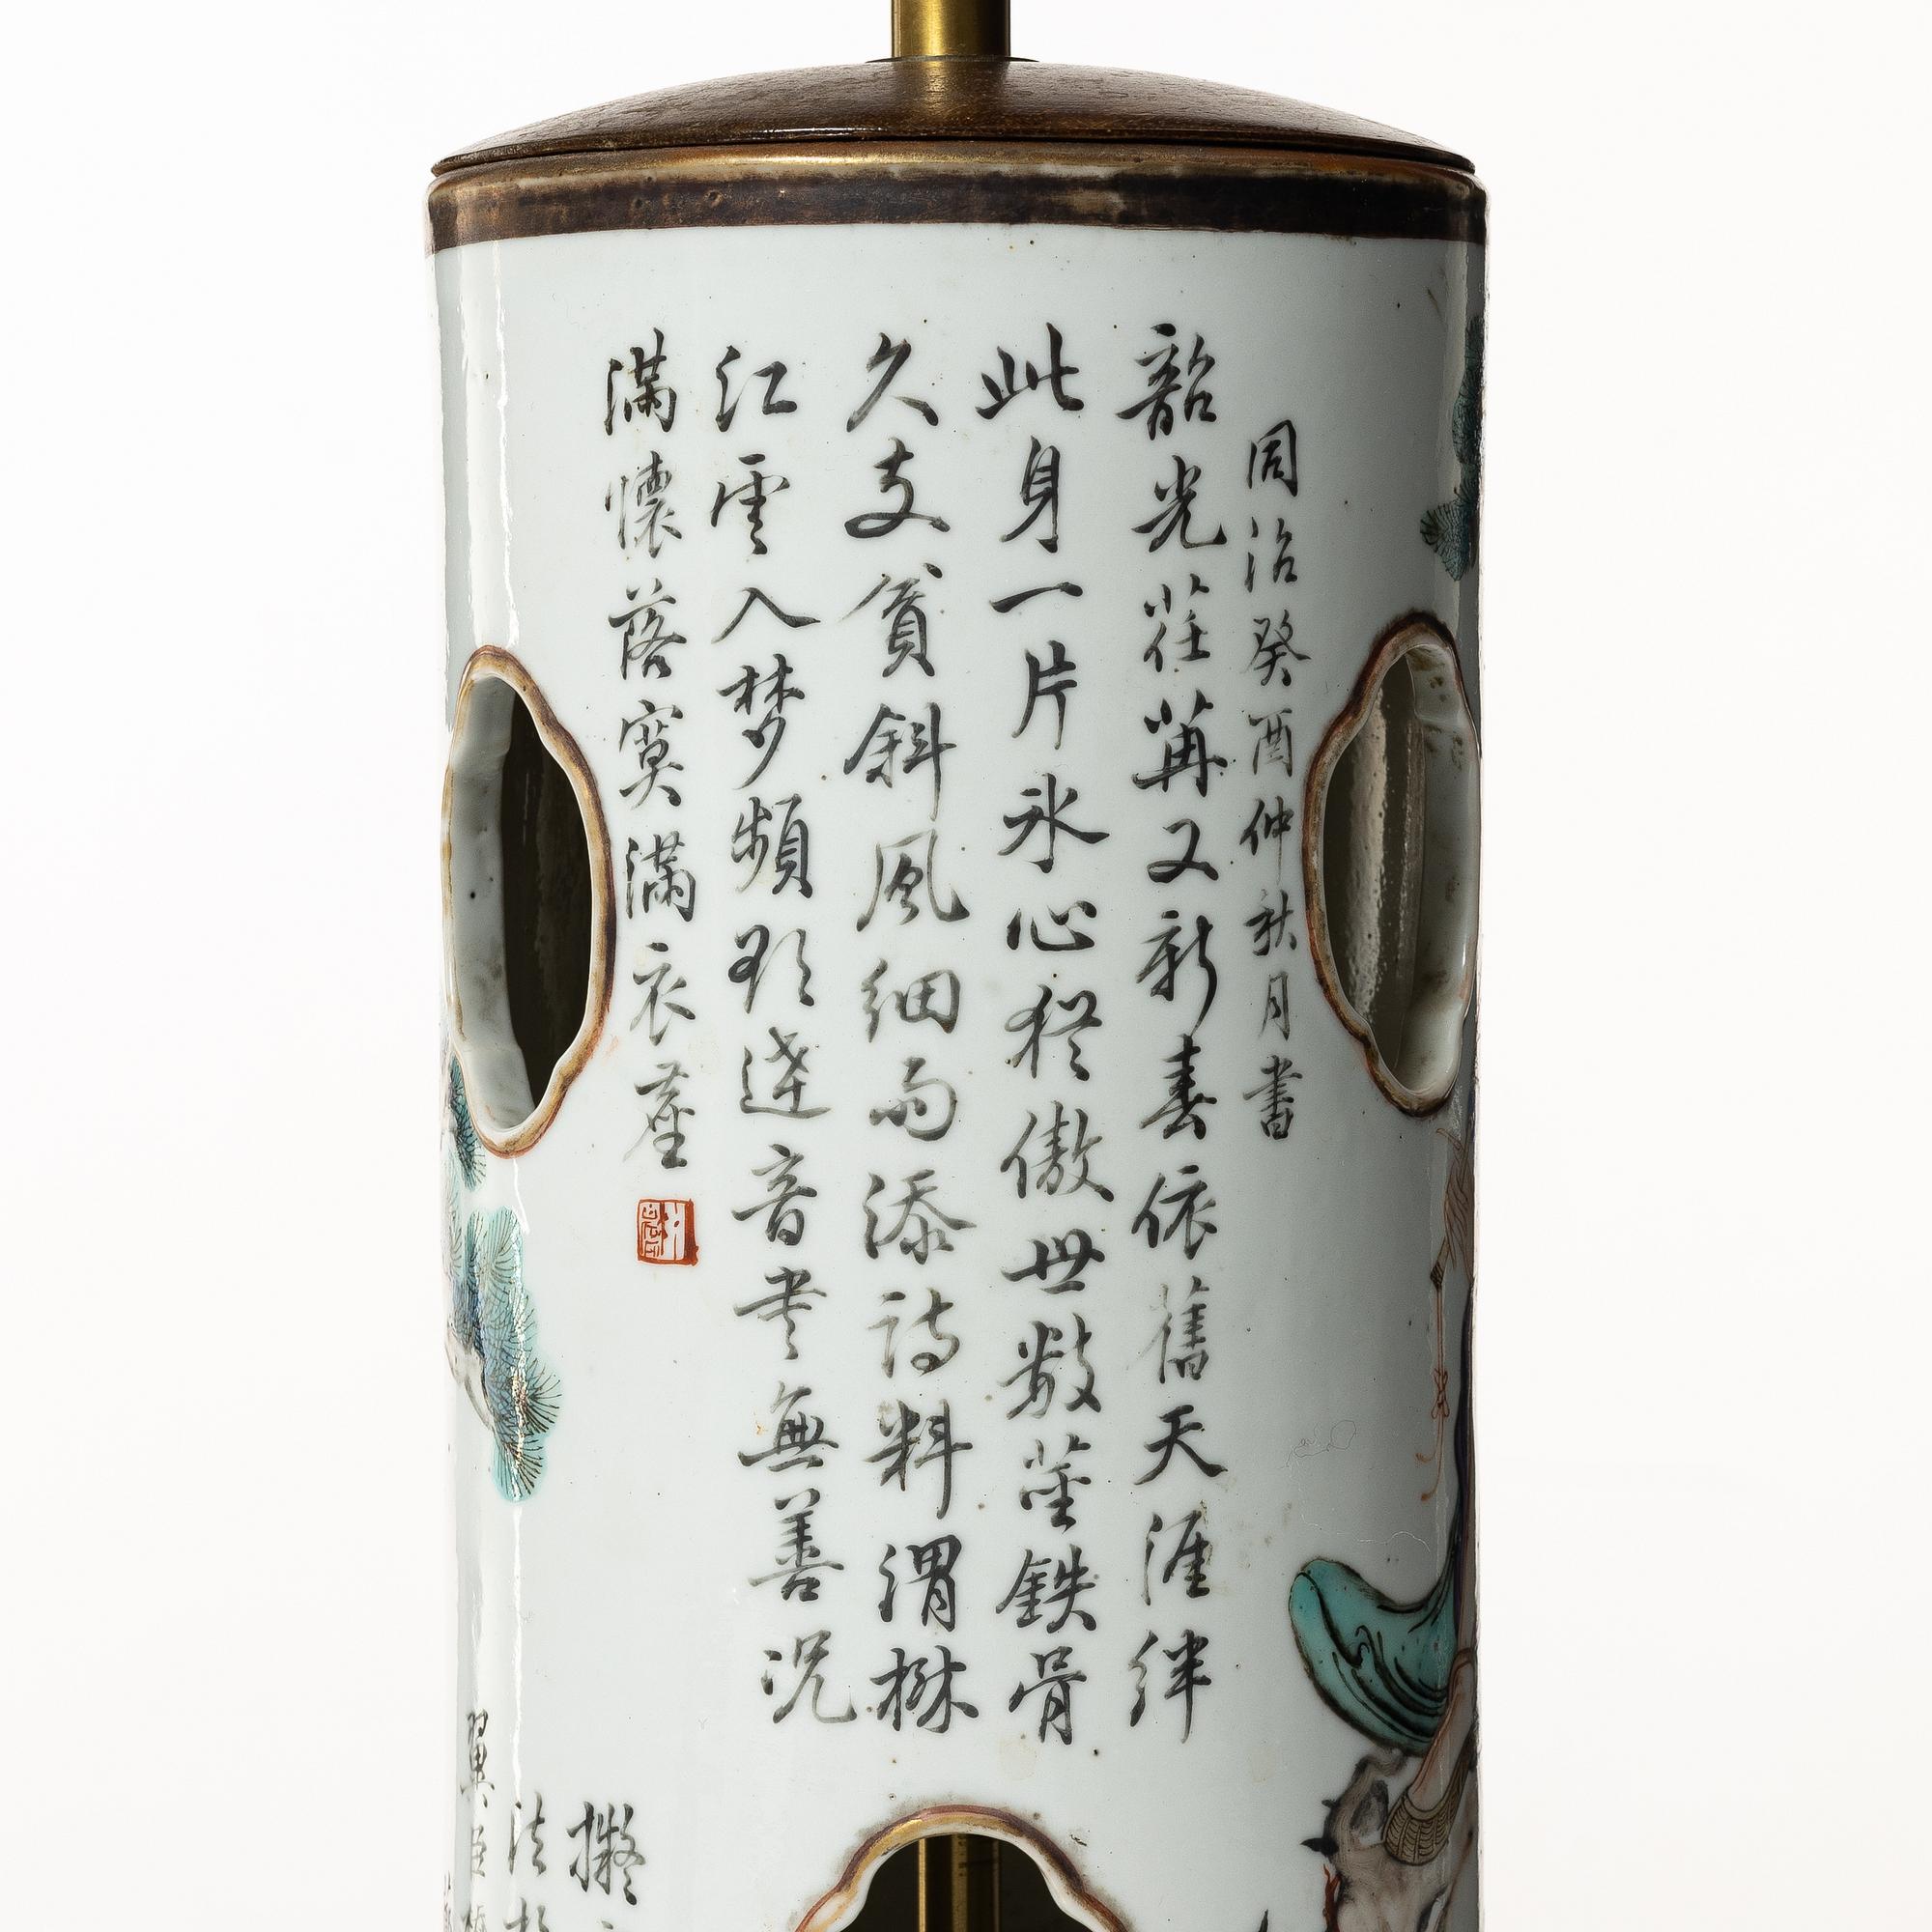 同治癸酉仲秋月書
韶光荏苒又新春依舊天涯絆
此身一片氷心猶傲世數莖鉄骨
久支貧斜風細雨添詩料渭樹
江雲入梦頻欲達音書無善況
滿懷落寞滿衣塵
擬
法
翼臣